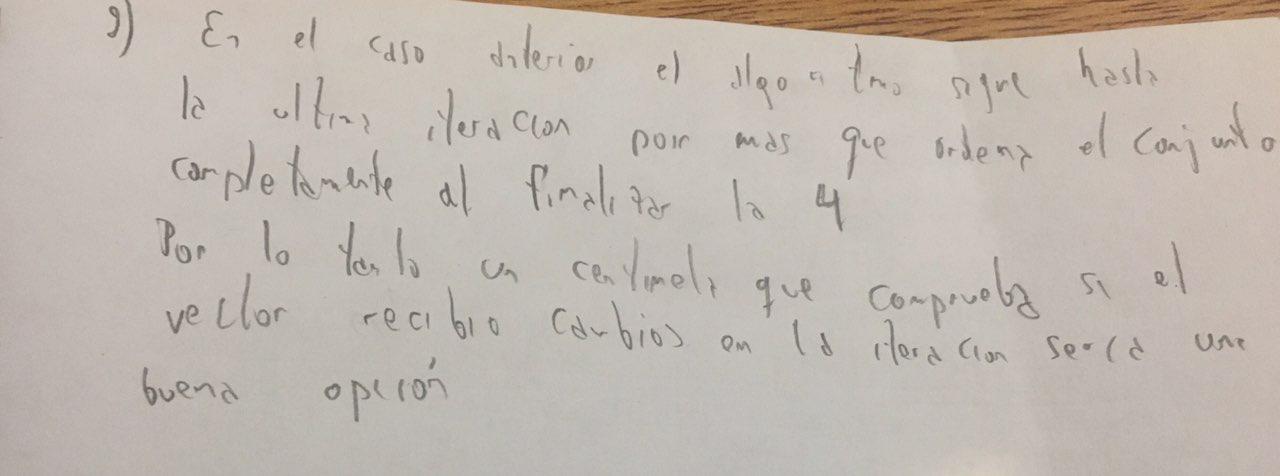 9) En el caso anterior el algoritmo sigue hasta
la ultima iteracion por mas que ordena el conjunto
completamente al finalizar la 4
Por lo tanto un centinela que comprueba si el
vector recibio cambios en la iteracion seria una
buena opción